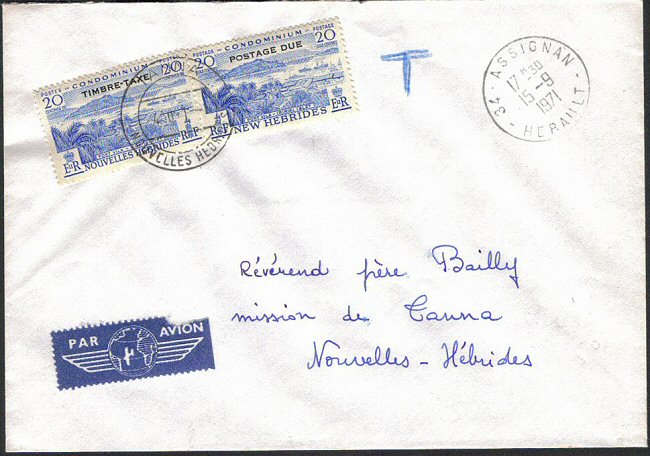 POSTES - CONDOMINIUM - POSTAGE
20 TIMBRE-TAXE 20
E R NOUVELLES HEBRIDES R F
POSTES - CONDOMINIUM - POSTAGE
20 POSTAGE DUE 20
R F NEW HEBRIDES E R
NOUVELLES HEBR
T
34 - ASSIGNAN -
17 H 30
15 - 9
1971
- HERAULT -
Révérend père Bailly
mission de Tanna
Nouvelles - Hébrides
PAR AVION